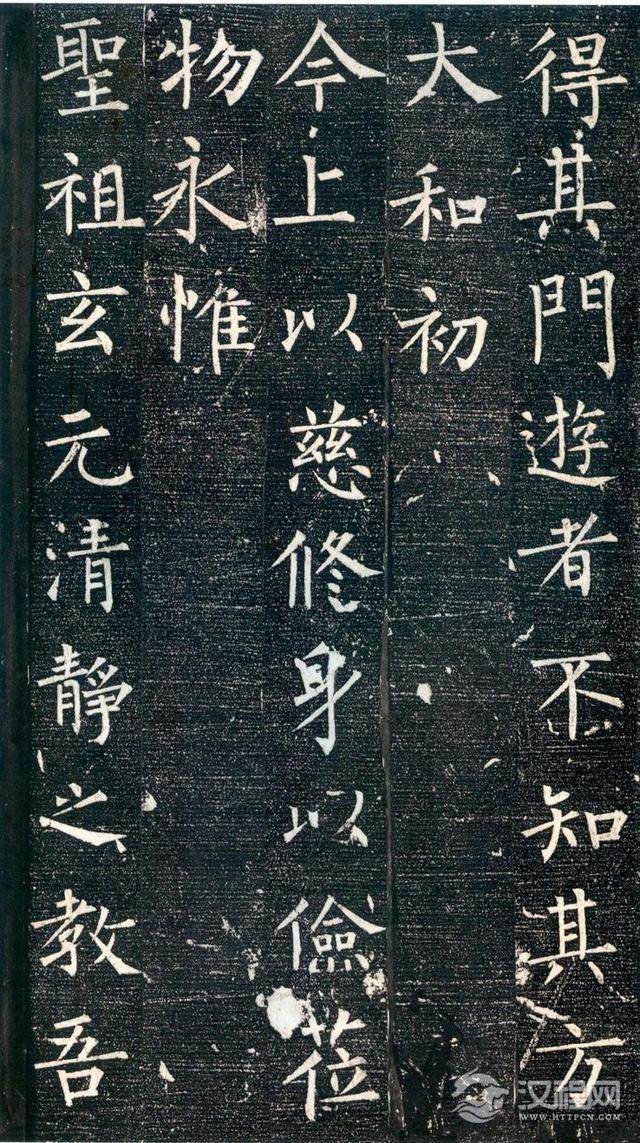 得其門遊者不知其方
大和初
今上以慈修身以儉莅
物永惟
聖祖玄元清靜之教吾
汉程网
WWW.HTTPCN.COM